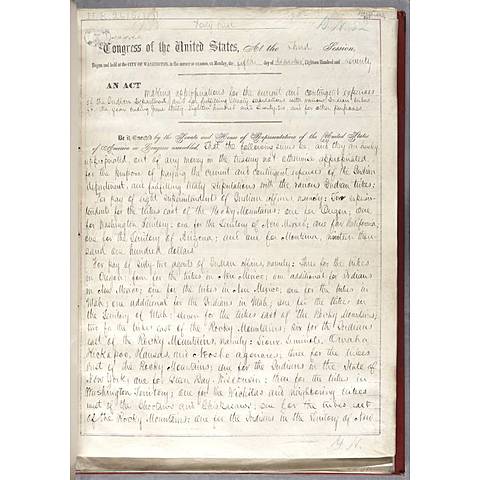 Forty-first
Congress of the United States, At the third Session,
Begun and held at the CITY OF WASHINGTON, in the DISTRICT OF COLUMBIA, on Monday, the fifth day of December, Eighteen Hundred and seventy
AN ACT making appropriations for the current and contingent expenses
of the Indian Department, and for fulfilling treaty stipulations with various Indian tribes
for the year ending June thirty, eighteen hundred and seventy-two, and for other purposes.
Be it Enacted by the Senate and House of Representatives of the United States
of America in Congress assembled, That the following sums be, and they are hereby
appropriated, out of any money in the treasury not otherwise appropriated
for the purpose of paying the current and contingent expenses of the Indian
department, and fulfilling treaty stipulations with the various Indian tribes:
For pay of eight superintendents of Indian affairs, namely: Two superin-
tendents for the tribes east of the Rocky Mountains; one in Oregon; one
for Washington Territory; one for the Territory of New Mexico; one for California;
one for the Territory of Arizona; and one for Montana, thousand
sand one hundred dollars
For pay of sixty-two agents of Indian affairs, namely: Three for the tribes
in Oregon; four for the tribes in New Mexico; one additional for Indians
in New Mexico; one for the tribes in New Mexico; one for the tribes in
Utah; one additional for the Indians in Utah; one for the tribes in
the Territory of Utah; eleven for the tribes east of the Rocky Mountains;
two for the tribes east of the Rocky Mountains; for the Indians
east of the Rocky Mountains, namely: Sioux, Seminole, Omaha,
Kickapoo, Kansas, and Neosho agencies; three for the tribes
east of the Rocky Mountains; one for the Indians in the State of
New York; one for Green Bay, Wisconsin; three for the tribes in
Washington Territory; one for the Wichitas and neighboring tribes
west of the Choctaws and Chickasaws; one for the tribes east
of the Rocky Mountains; one for the Indians in the Territory of New